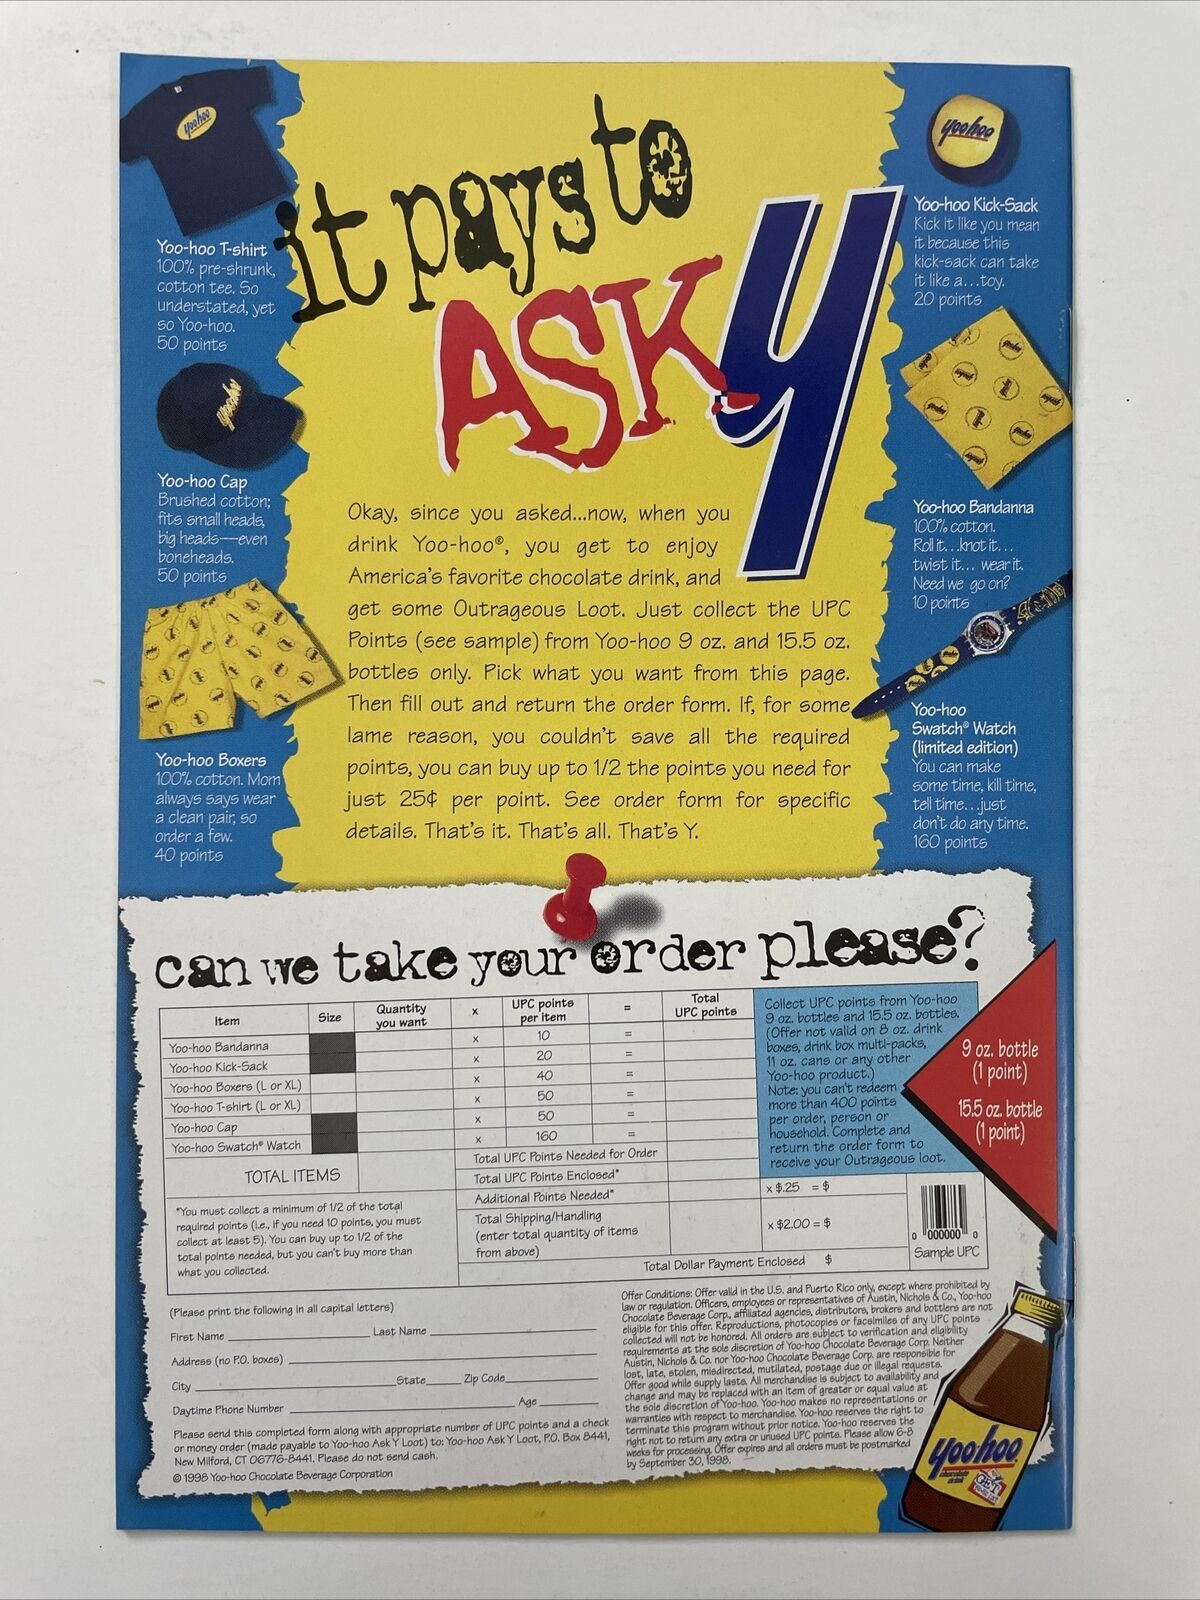 it pays to
ASK Y
yoohoo
Yoo-hoo T-shirt
100% pre-shrunk,
cotton tee. So
understated, yet
so Yoo-hoo.
50 points
yoohoo
Yoo-hoo Cap
Brushed cotton;
fits small heads,
big heads—even
boneheads.
50 points
Yoo-hoo Boxers
100% cotton. Mom
always says wear
a clean pair, so
order a few.
40 points
Okay, since you asked...now, when you
drink Yoo-hoo®, you get to enjoy
America's favorite chocolate drink, and
get some Outrageous Loot. Just collect the UPC
Points (see sample) from Yoo-hoo 9 oz. and 15.5 oz.
bottles only. Pick what you want from this page.
Then fill out and return the order form. If, for some
lame reason, you couldn't save all the required
points, you can buy up to 1/2 the points you need for
just 25¢ per point. See order form for specific
details. That's it. That's all. That's Y.
yoohoo
Yoo-hoo Kick-Sack
Kick it like you mean
it because this
kick-sack can take
it like a...toy.
20 points
Yoo-hoo Bandanna
100% cotton.
Roll it...knot it...
twist it... wear it.
Need we go on?
10 points
Yoo-hoo
Swatch® Watch
(limited edition)
You can make
some time, kill time,
tell time...just
don't do any time.
160 points
can we take your order please?
Item Size Quantity you want x UPC points per item = Total UPC points
Yoo-hoo Bandanna x 10 =
Yoo-hoo Kick-Sack x 20 =
Yoo-hoo Boxers (L or XL) x 40 =
Yoo-hoo T-shirt (L or XL) x 50 =
Yoo-hoo Cap x 50 =
Yoo-hoo Swatch® Watch x 160 =
TOTAL ITEMS
Total UPC Points Needed for Order
Total UPC Points Enclosed*
Additional Points Needed* x $.25 = $
Total Shipping/Handling
(enter total quantity of items
from above) x $2.00 = $
Total Dollar Payment Enclosed $
*You must collect a minimum of 1/2 of the total
required points (i.e., if you need 10 points, you must
collect at least 5). You can buy up to 1/2 of the
total points needed, but you can't buy more than
what you collected.
Collect UPC points from Yoo-hoo
9 oz. bottles and 15.5 oz. bottles.
(Offer not valid on 8 oz. drink
boxes, drink box multi-packs,
11 oz. cans or any other
Yoo-hoo product.)
Note: you can't redeem
more than 400 points
per order, person or
household. Complete and
return the order form to
receive your Outrageous loot.
9 oz. bottle
(1 point)
15.5 oz. bottle
(1 point)
0 000000 0
Sample UPC
(Please print the following in all capital letters)
First Name Last Name
Address (no P.O. boxes)
City State Zip Code
Daytime Phone Number Age
Please send this completed form along with appropriate number of UPC points and a check
or money order (made payable to Yoo-hoo Ask Y Loot) to: Yoo-hoo Ask Y Loot, P.O. Box 8441,
New Milford, CT 06776-8441. Please do not send cash.
© 1998 Yoo-hoo Chocolate Beverage Corporation
Offer Conditions: Offer valid in the U.S. and Puerto Rico only, except where prohibited by
law or regulation. Officers, employees or representatives of Austin, Nichols & Co., Yoo-hoo
Chocolate Beverage Corp., affiliated agencies, distributors, brokers and bottlers are not
eligible for this offer. Reproductions, photocopies or facsimiles of any UPC points
collected will not be honored. All orders are subject to verification and eligibility
requirements at the sole discretion of Yoo-hoo Chocolate Beverage Corp. Neither
Austin, Nichols & Co. nor Yoo-hoo Chocolate Beverage Corp. are responsible for
lost, late, stolen, misdirected, mutilated, postage due or illegal requests.
Offer good while supply lasts. All merchandise is subject to availability and
change and may be replaced with an item of greater or equal value at
the sole discretion of Yoo-hoo. Yoo-hoo makes no representations or
warranties with respect to merchandise. Yoo-hoo reserves the right to
terminate this program without prior notice. Yoo-hoo reserves the
right not to return any extra or unused UPC points. Please allow 6-8
weeks for processing. Offer expires and all orders must be postmarked
by September 30, 1998.
yoohoo
chocolate
drink